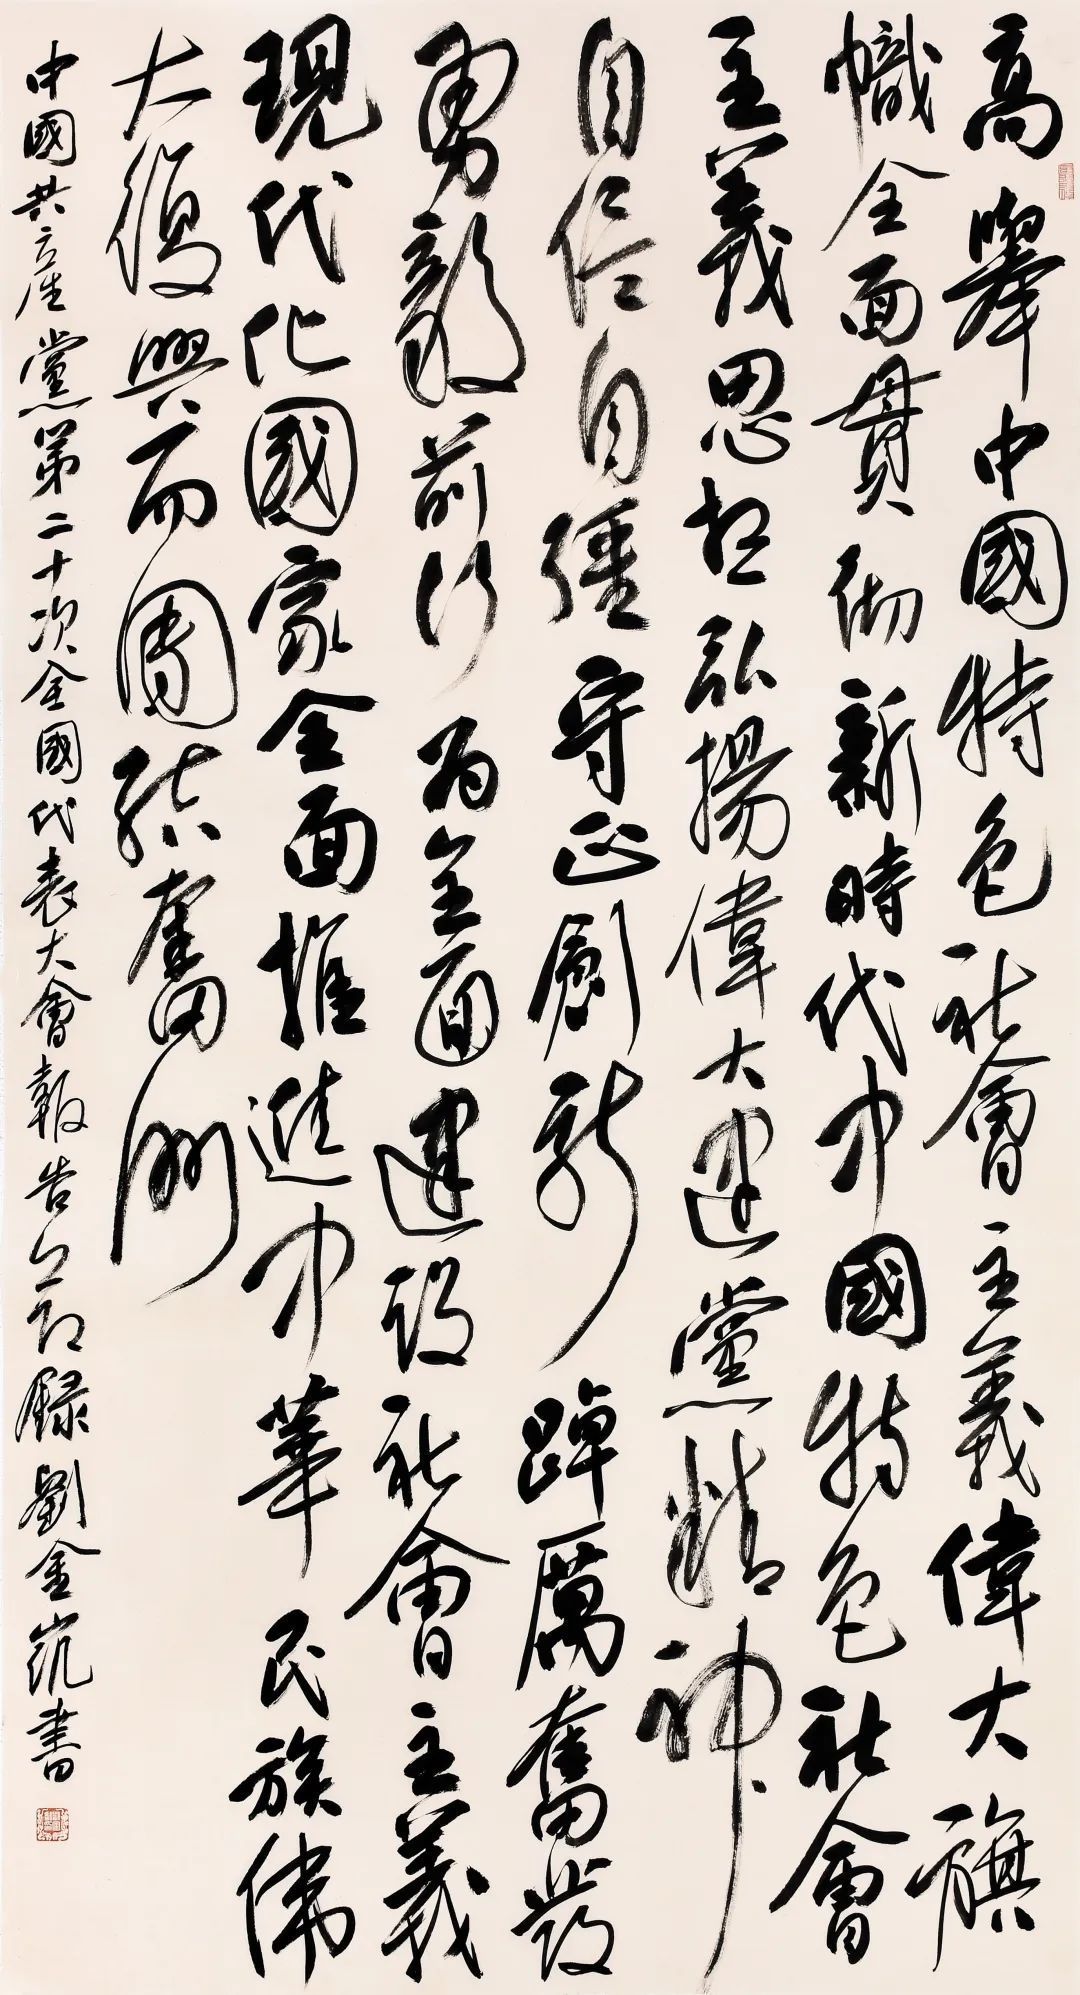 高舉中國特色社會主義偉大旗
幟全面貫彻新時代中國特色社會
主義思想弘揚偉大建黨精神
自信自強守正創新踔厲奮發
勇毅前行為全面建設社會主義
現代化國家全面推進中華民族偉
大復興而團結奮鬥
中國共產黨第二十次全國代表大會報告節錄劉金凱書